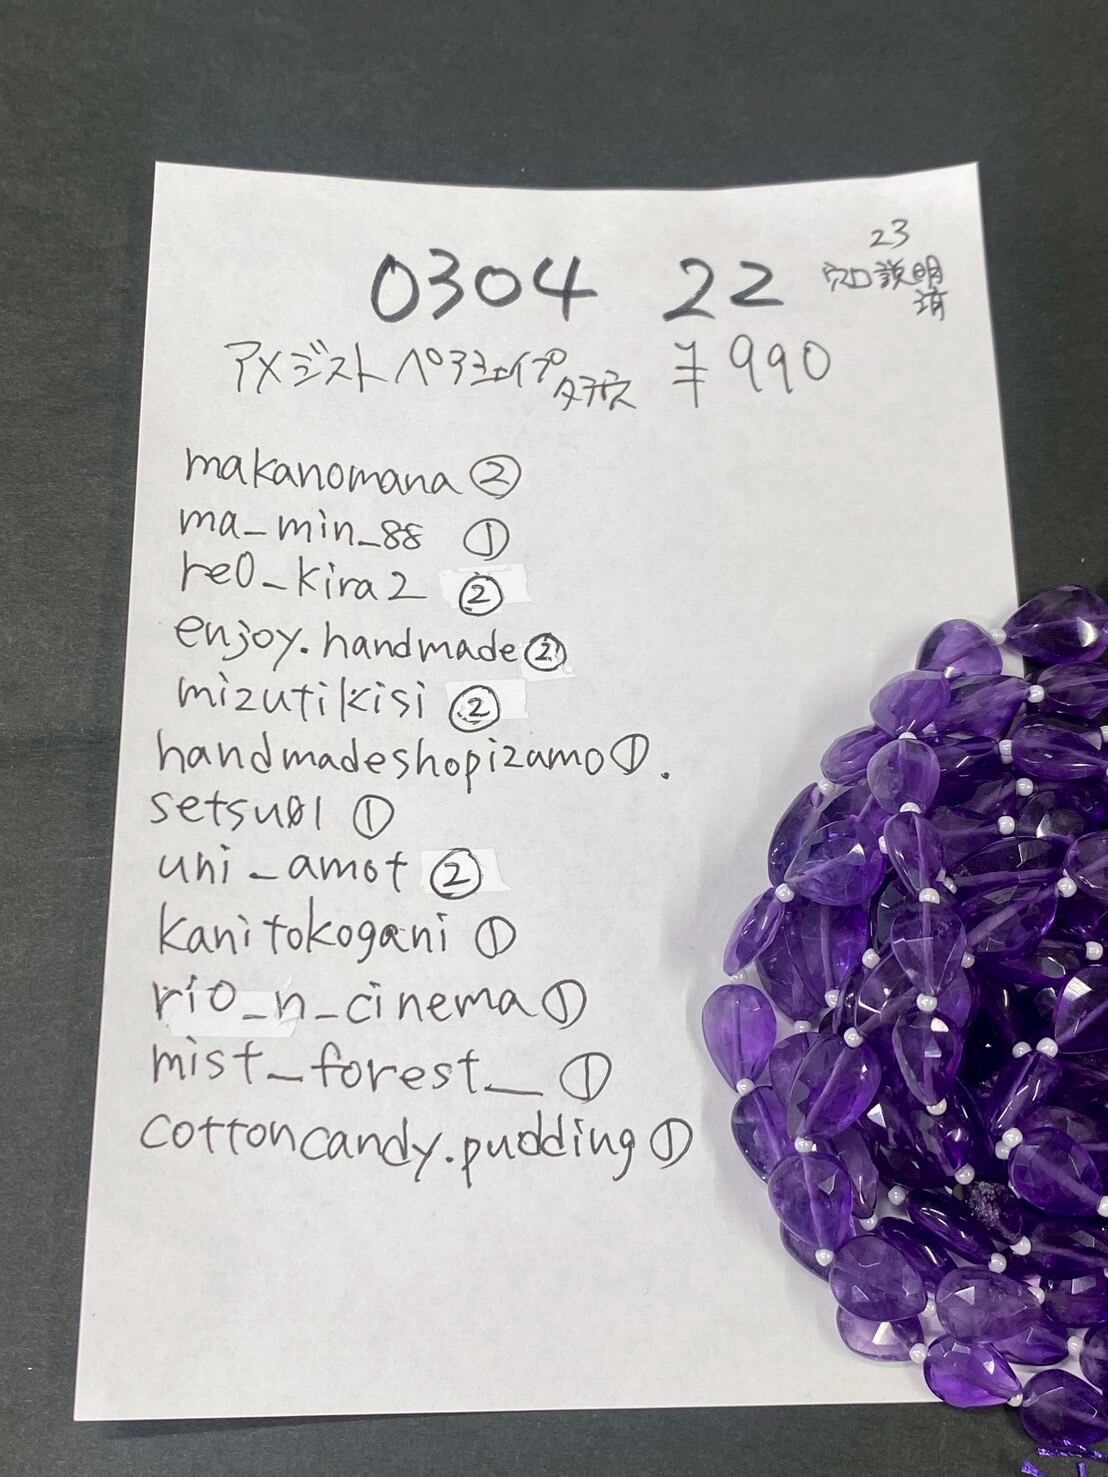 0304 22
23
穴口説明
済
アメジストペアシェイプ ¥990
タテ穴
makanomana ②
ma_min_88 ①
re0_kira2 ②
enjoy.handmade ②
mizutikisi ②
handmadeshopizamo ①.
setsu01 ①
uni_amot ②
kanitokogani ①
rio_n_cinema ①
mist_forest__ ①
cottoncandy.pudding ①